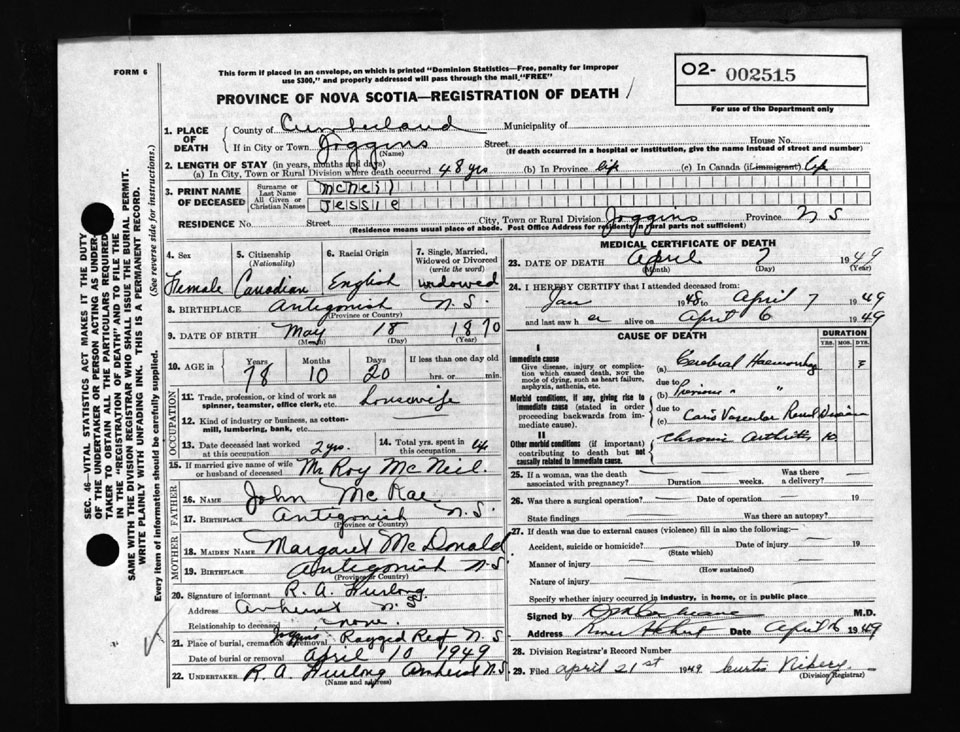 FORM 6
This form if placed in an envelope, on which is printed "Dominion Statistics—Free, penalty for improper
use $300," and properly addressed will pass through the mail "FREE"
O2- 002515
For use of the Department only
PROVINCE OF NOVA SCOTIA—REGISTRATION OF DEATH
1. PLACE OF DEATH
County of Cumberland Municipality of
If in City or Town Joggins Street House No.
(Name) (If death occurred in a hospital or institution, give the name instead of street and number)
2. LENGTH OF STAY (in years, months and days)
(a) In City, Town or Rural Division where death occurred 48 yrs (b) In Province life (c) In Canada (if immigrant) life
3. PRINT NAME OF DECEASED
Surname or Last Name McNeil
All Given or Christian Names Jessie
RESIDENCE No. Street City, Town or Rural Division Joggins Province N S
(Residence means usual place of abode. Post Office Address for residents in rural parts not sufficient)
4. Sex 5. Citizenship (Nationality) 6. Racial Origin 7. Single, Married, Widowed or Divorced (write the word)
Female Canadian English widowed
8. BIRTHPLACE Antigonish N. S.
(Province or Country)
9. DATE OF BIRTH May 18 1870
(Month) (Day) (Year)
10. AGE in Years Months Days If less than one day old
78 10 20 hrs. or min.
OCCUPATION
11. Trade, profession, or kind of work as spinner, teamster, office clerk, etc. housewife
12. Kind of industry or business, as cotton-mill, lumbering, bank, etc.
13. Date deceased last worked at this occupation 2 yrs. 14. Total yrs. spent in this occupation
15. If married give name of wife or husband of deceased Mr Roy McNeil.
FATHER
16. NAME John McRae
17. BIRTHPLACE Antigonish N. S.
(Province or Country)
MOTHER
18. MAIDEN NAME Margaret McDonald
19. BIRTHPLACE Antigonish N. S.
(Province or Country)
20. Signature of informant R. A. Furlong
Address Amherst N. S.
Relationship to deceased none.
21. Place of burial, cremation or removal Joggins Ragged Reef N. S
Date of burial or removal April 10 1949
22. UNDERTAKER R. A. Furlong Amherst N. S.
(Name and address)
MEDICAL CERTIFICATE OF DEATH
23. DATE OF DEATH April 7 1949
(Month) (Day) (Year)
24. I HEREBY CERTIFY that I attended deceased from:
Jan 1948 to April 7 1949
and last saw her alive on April 6 1949
CAUSE OF DEATH DURATION
YRS. MOS. DYS.
I
Immediate cause
Give disease, injury or complication which caused death, not the mode of dying, such as heart failure, asphyxia, asthenia, etc.
(a) Cerebral Haemorrhage
due to
Morbid conditions, if any, giving rise to immediate cause (stated in order proceeding backwards from immediate cause).
(b) Previous " "
due to
(c) Card Vascular Renal Disease
II
Other morbid conditions (if important) contributing to death but not causally related to immediate cause.
Chronic Arthritis 10
25. If a woman, was the death associated with pregnancy? Duration weeks. Was there a delivery?
26. Was there a surgical operation? Date of operation 19
State findings Was there an autopsy?
27. If death was due to external causes (violence) fill in also the following:—
Accident, suicide or homicide? Date of injury 19
(State which)
Manner of injury
(How sustained)
Nature of injury
Specify whether injury occurred in industry, in home, or in public place
Signed by M.D.
Address Date April 1949
28. Division Registrar's Record Number
29. Filed April 21st 1949 Curtis
(Division Registrar)
SEC. 46—VITAL STATISTICS ACT MAKES IT THE DUTY
OF THE UNDERTAKER OR PERSON ACTING AS UNDER-
TAKER TO OBTAIN ALL THE PARTICULARS REQUIRED
IN THE "REGISTRATION OF DEATH" AND TO FILE THE
SAME WITH THE DIVISION REGISTRAR WHO SHALL ISSUE THE BURIAL PERMIT.
WRITE PLAINLY WITH UNFADING INK. THIS IS A PERMANENT RECORD.
Every item of information should be carefully supplied. (See reverse side for instructions.)